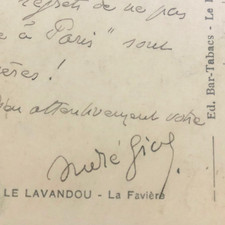 regrets de ne pas
à Paris" sont
ères !
attentivement votre
André Gide
LE LAVANDOU - La Favière
Ed. Bar-Tabacs - Le